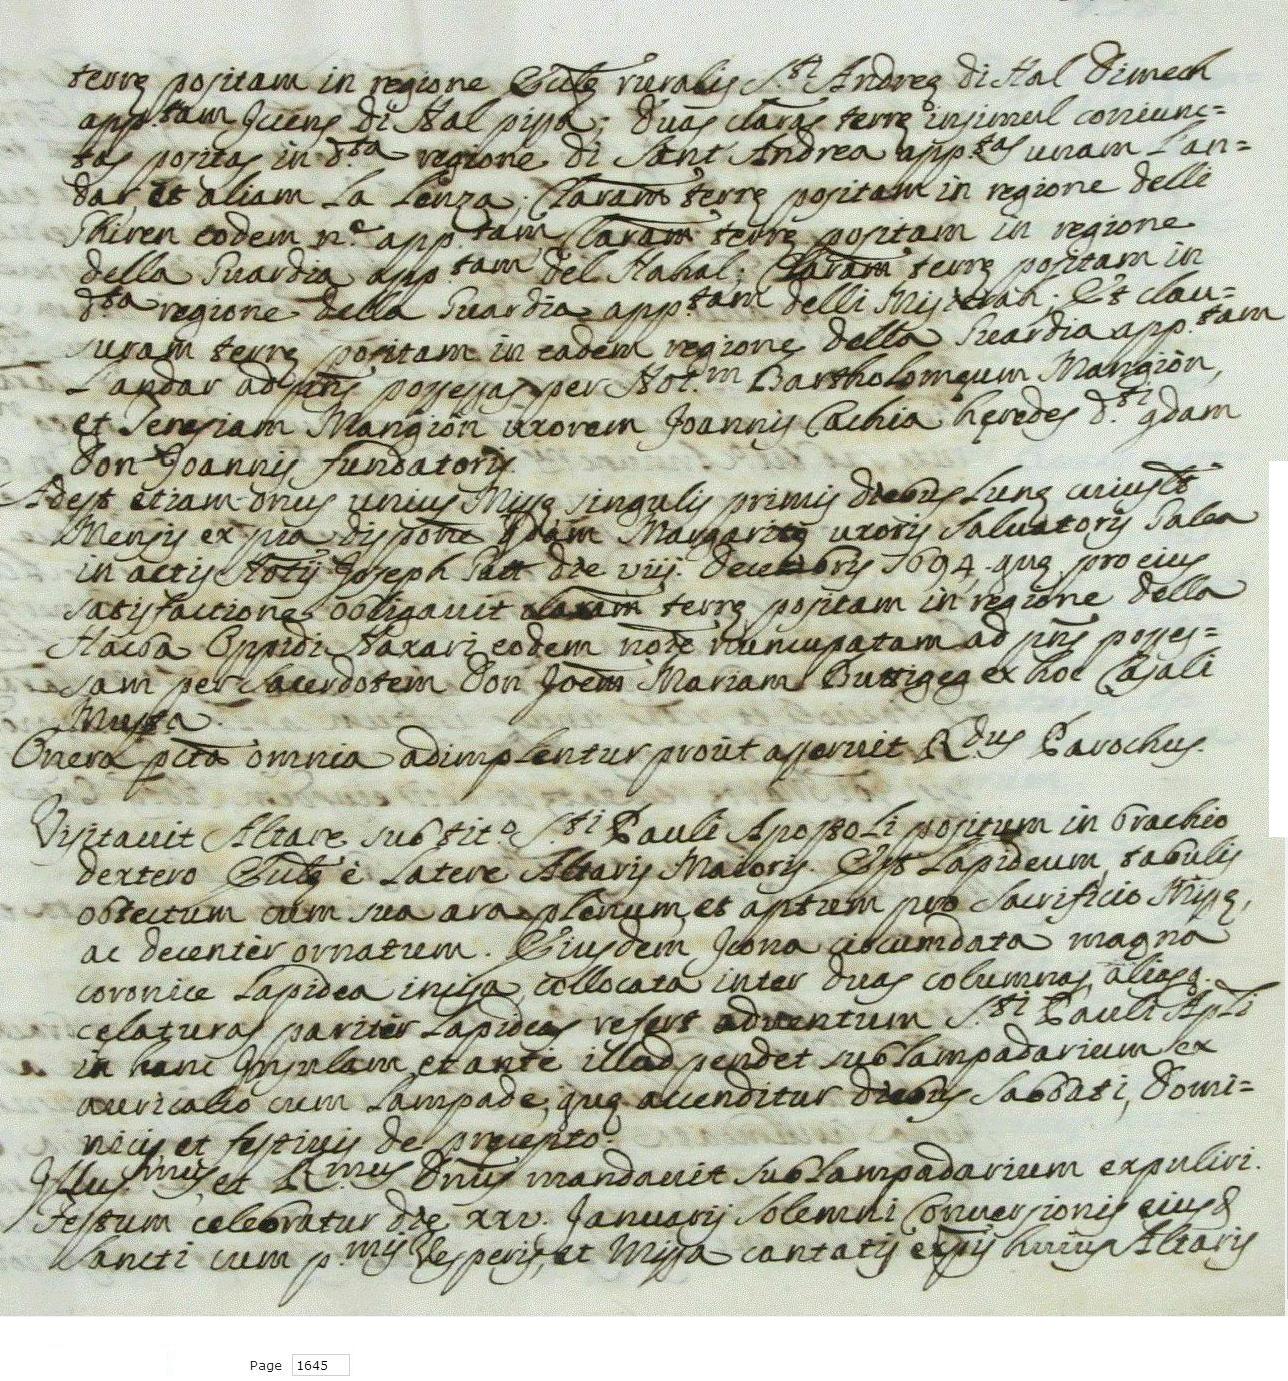 terrę positam in regione Ecclę ruralis S.ti Andreę di Hal Dimech
app.tam Jnens di Hal pissa; duas claras terrę insimul coniunc=
tas positas in d.ta regione di Sant Andrea app.tas unam L'an=
dar, et aliam La Lenza; Claram terrę positam in regione delli
Thiren eodem n.e app.tam; Claram terrę positam in regione
della Guardia app.tam del Hahal; Claram terrę positam in
d.ta regione della Guardia app.tam delli Misitrah. Et clau=
suram terrę positam in eadem regione della Guardia app.tam
L'andar ad pñs possessas per Not.m Bartholomęum Mangiòn,
et Teresiam Mangiòn uxorem Joannis Cachia hęredes d.ti qdam
Don Joannis fundatoris.
Adest etiam onus unius Missę singulis primis diebus Lunę cuiusl.t
Mensis ex pia dispone qdam Margaritę uxoris Saluatoris Galea
in actis Notij Joseph Gatt die viij. Decembris 1694. quę pro eius
satisfactione obligauit claram terrę positam in regione della
Hacba Oppidi Naxari eodem noїe nuncupatam ad pñs posses=
sam per Sacerdotem Don Joem Mariam Buttigeg ex hoc Casali
Musta.
Onera pcta omnia adimplentur proùt asseruit R.dus Parochus.
Visitauit Altare sub tit.o S.ti Pauli Apostoli positum in brachio
dextero Ecclę è Latere Altaris Maioris. Est Lapideum, tabulis
obtectum cum sua ara plenum, et aptum pro Sacrificio Missę,
ac decentèr ornatum. Eiusdem Jcona circumdata magna
coronice Lapidea incisa, collocata inter duas columnas, aliasq.
celaturas paritèr Lapideas refert adventum S.ti Pauli Apli
in hanc Jnsulam, et antè illud pendet sublampadarium ex
auricalco cum Lampade, quę accenditur diebus Sabbati, Domi=
nicis, et festiuis de precepto.
Jllus.mus, et R.mus Dnus mandauit sublampadarium expuliri.
Festum celebratur die xxv. Januarij Solemni Conuersionis eiusd.
Sancti cum p.mis Vesperis, et Missa cantatis expis huius Altaris